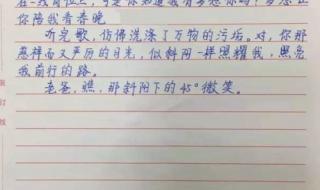 你陪我看春晚
听完歌，仿佛洗涤了万物的污垢。对，你那
慈祥而又严厉的目光，似斜阳一样照耀我，照亮
我前行的路。
老爸，瞧，那斜阳下的45°微笑。
装订线